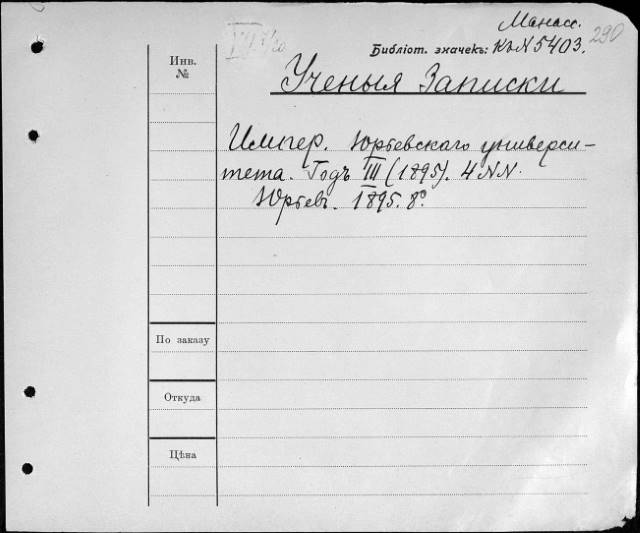 Манас.
290
Библіот. значекъ: КъN 5403.
Инв.
№
Ученыя Записки
Импер. Юрьевскаго универси-
тета. Годъ III (1895). 4 NN.
Юрьевъ. 1895. 8º
По заказу
Откуда
Цѣна